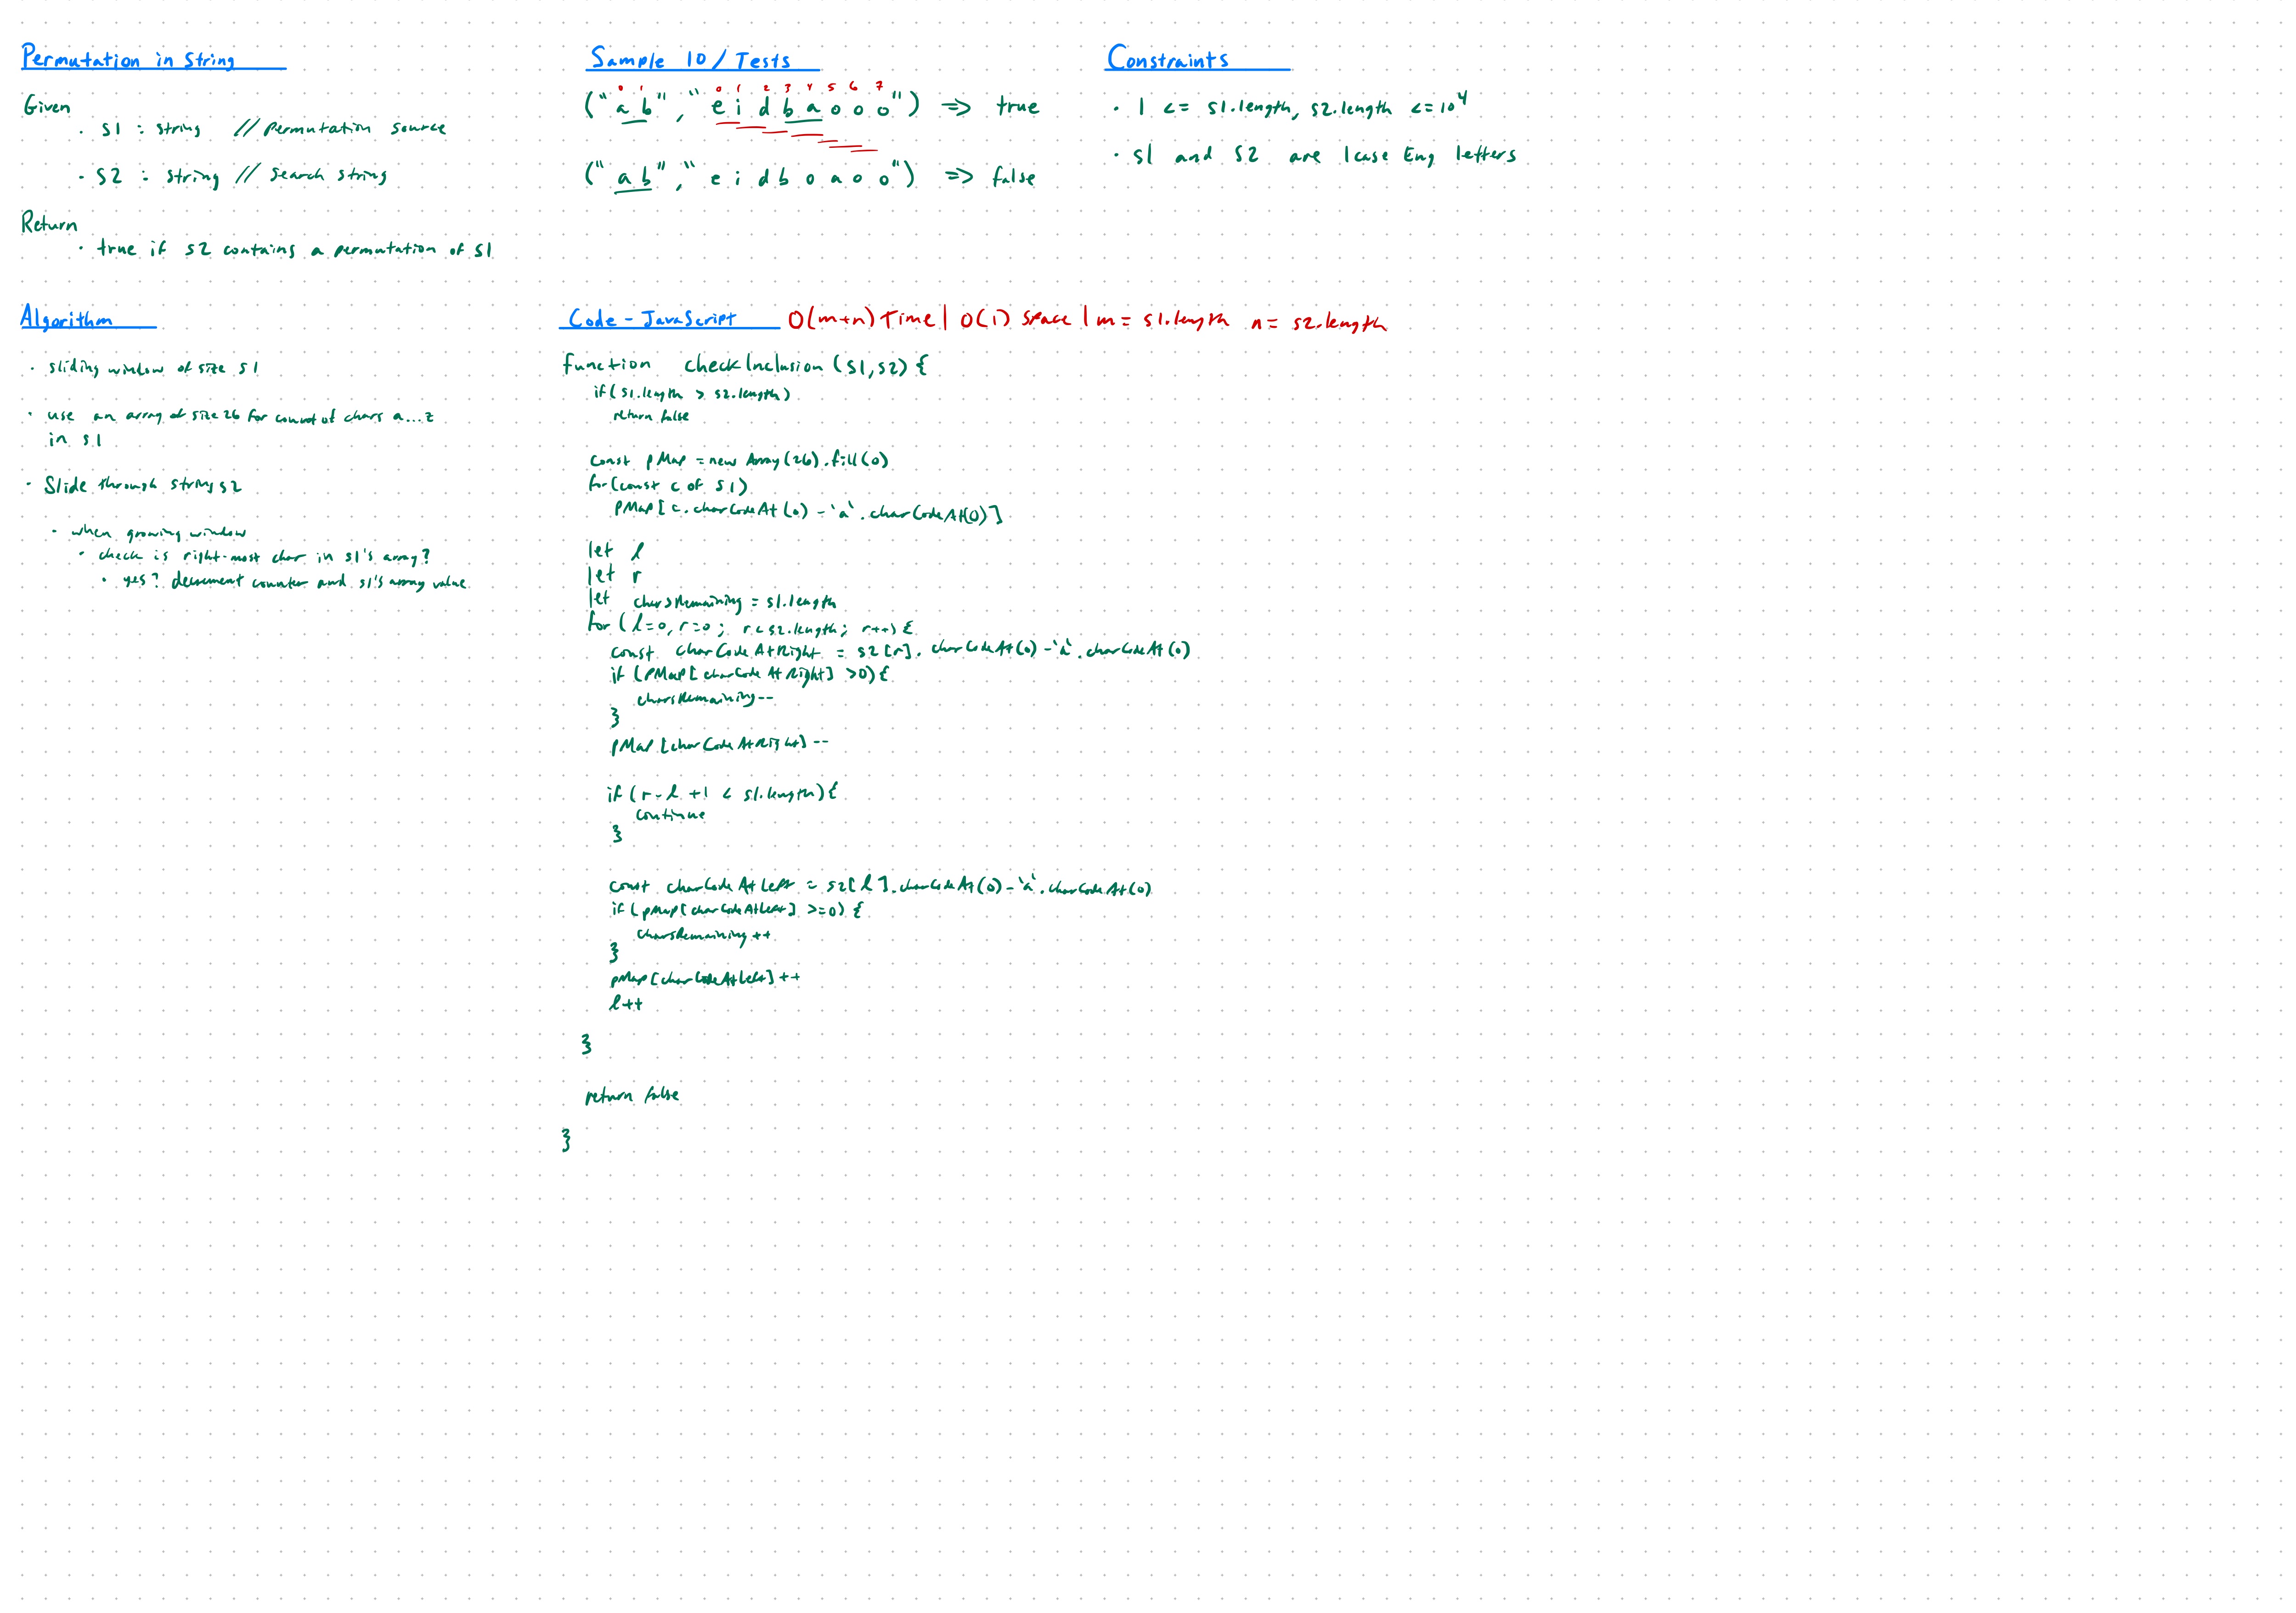 Permutation in String
Given
· S1 : string // Permutation source
· S2 : string // Search string
Return
· true if S2 contains a permutation of S1
Sample IO / Tests
0 1 0 1 2 3 4 5 6 7
("ab", "eidbaooo") => true
("ab", "eidboaoo") => false
Constraints
· 1 <= S1.length, S2.length <= 10^4
· S1 and S2 are lcase Eng letters
Algorithm
· sliding window of size S1
· use an array of size 26 for count of chars a...z
in S1
· Slide through string S2
· when growing window
· check is right-most char in S1's array?
· yes? decrement counter and S1's array value
Code - JavaScript O(m+n) Time | O(1) Space | m = S1.length n = S2.length
function checkInclusion (S1, S2) {
if (S1.length > S2.length)
return false
const pMap = new Array(26).fill(0)
for (const c of S1)
pMap[c.charCodeAt(0) - `a`.charCodeAt(0)]
let l
let r
let charsRemaining = S1.length
for (l=0, r=0; r < S2.length; r++) {
const charCodeAtRight = S2[r].charCodeAt(0) - `a`.charCodeAt(0)
if (pMap[charCodeAtRight] > 0) {
charsRemaining--
}
pMap[charCodeAtRight]--
if (r - l + 1 < S1.length) {
continue
}
const charCodeAtLeft = S2[l].charCodeAt(0) - `a`.charCodeAt(0)
if (pMap[charCodeAtLeft] >= 0) {
charsRemaining++
}
pMap[charCodeAtLeft]++
l++
}
return false
}